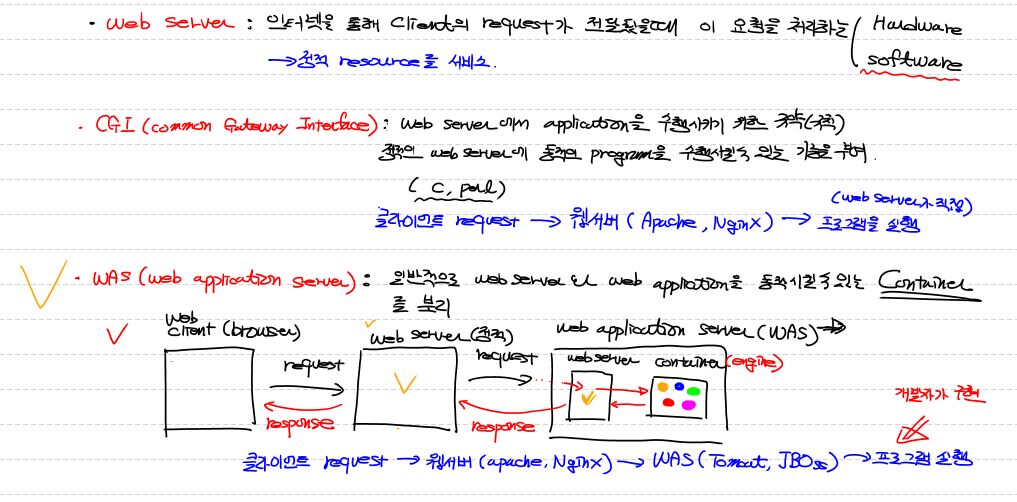 · Web Server : 인터넷을 통해 Client의 request가 전달됐을때 이 요청을 처리하는 ( Hardware
software
→ 정적 resource를 서비스.
· CGI (common Gateway Interface) : Web server에서 application을 수행시키기 위한 규약(규칙)
정적인 web server에 동적인 program을 수행시킬수 있는 기능을 부여.
( C, perl )
(web server가 직접)
클라이언트 request → 웹서버 ( Apache, NginX) → 프로그램을 실행
· WAS (web application server) : 일반적으로 web server와 web application을 동작시킬수 있는 Container
를 분리
web
client (browser)
web server(정적)
web application server (WAS)→
request
request
web server container(engine)
response
response
개발자가 구현
클라이언트 request → 웹서버 (apache, NginX) → WAS ( Tomcat, JBOSS) → 프로그램 실행